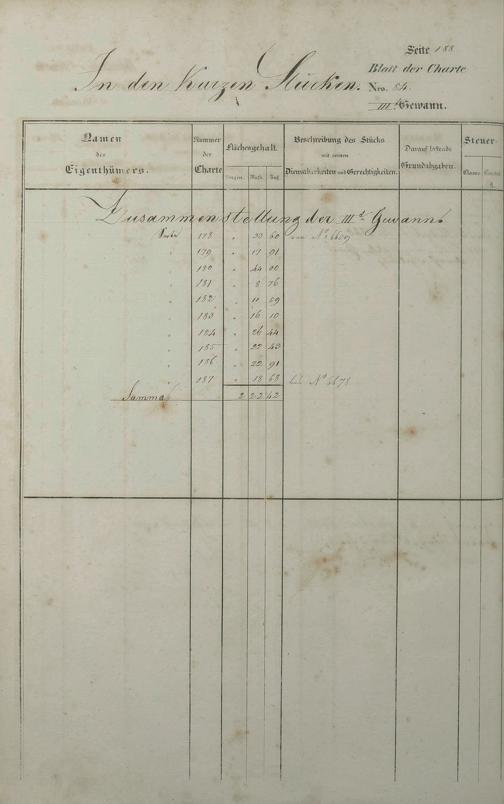 Seite 188
Blatt der Charte
In den kurzen Stücken. Nro. 84.
III.te Gewann.
Namen des Eigenthümers. Nummer der Charte Flächengehalt. Beschreibung des Stücks mit seinen Dienstbarkeiten und Gerechtigkeiten. Darauf haftende Grundabgaben. Steuer
Morgen. Rth. Classe
Zusammenstellung der III.t Gewann.
Seite 178 " 20 60 von No. 6609
" 179 " 17 91
" 180 " 44 00
" 181 " 8 76
" 182 " 11 59
" 183 " 16 10
" 184 " 26 44
" 185 " 22 43
" 186 " 22 91
" 187 " 18 68 bis No. 6678
Summa 2 22 42